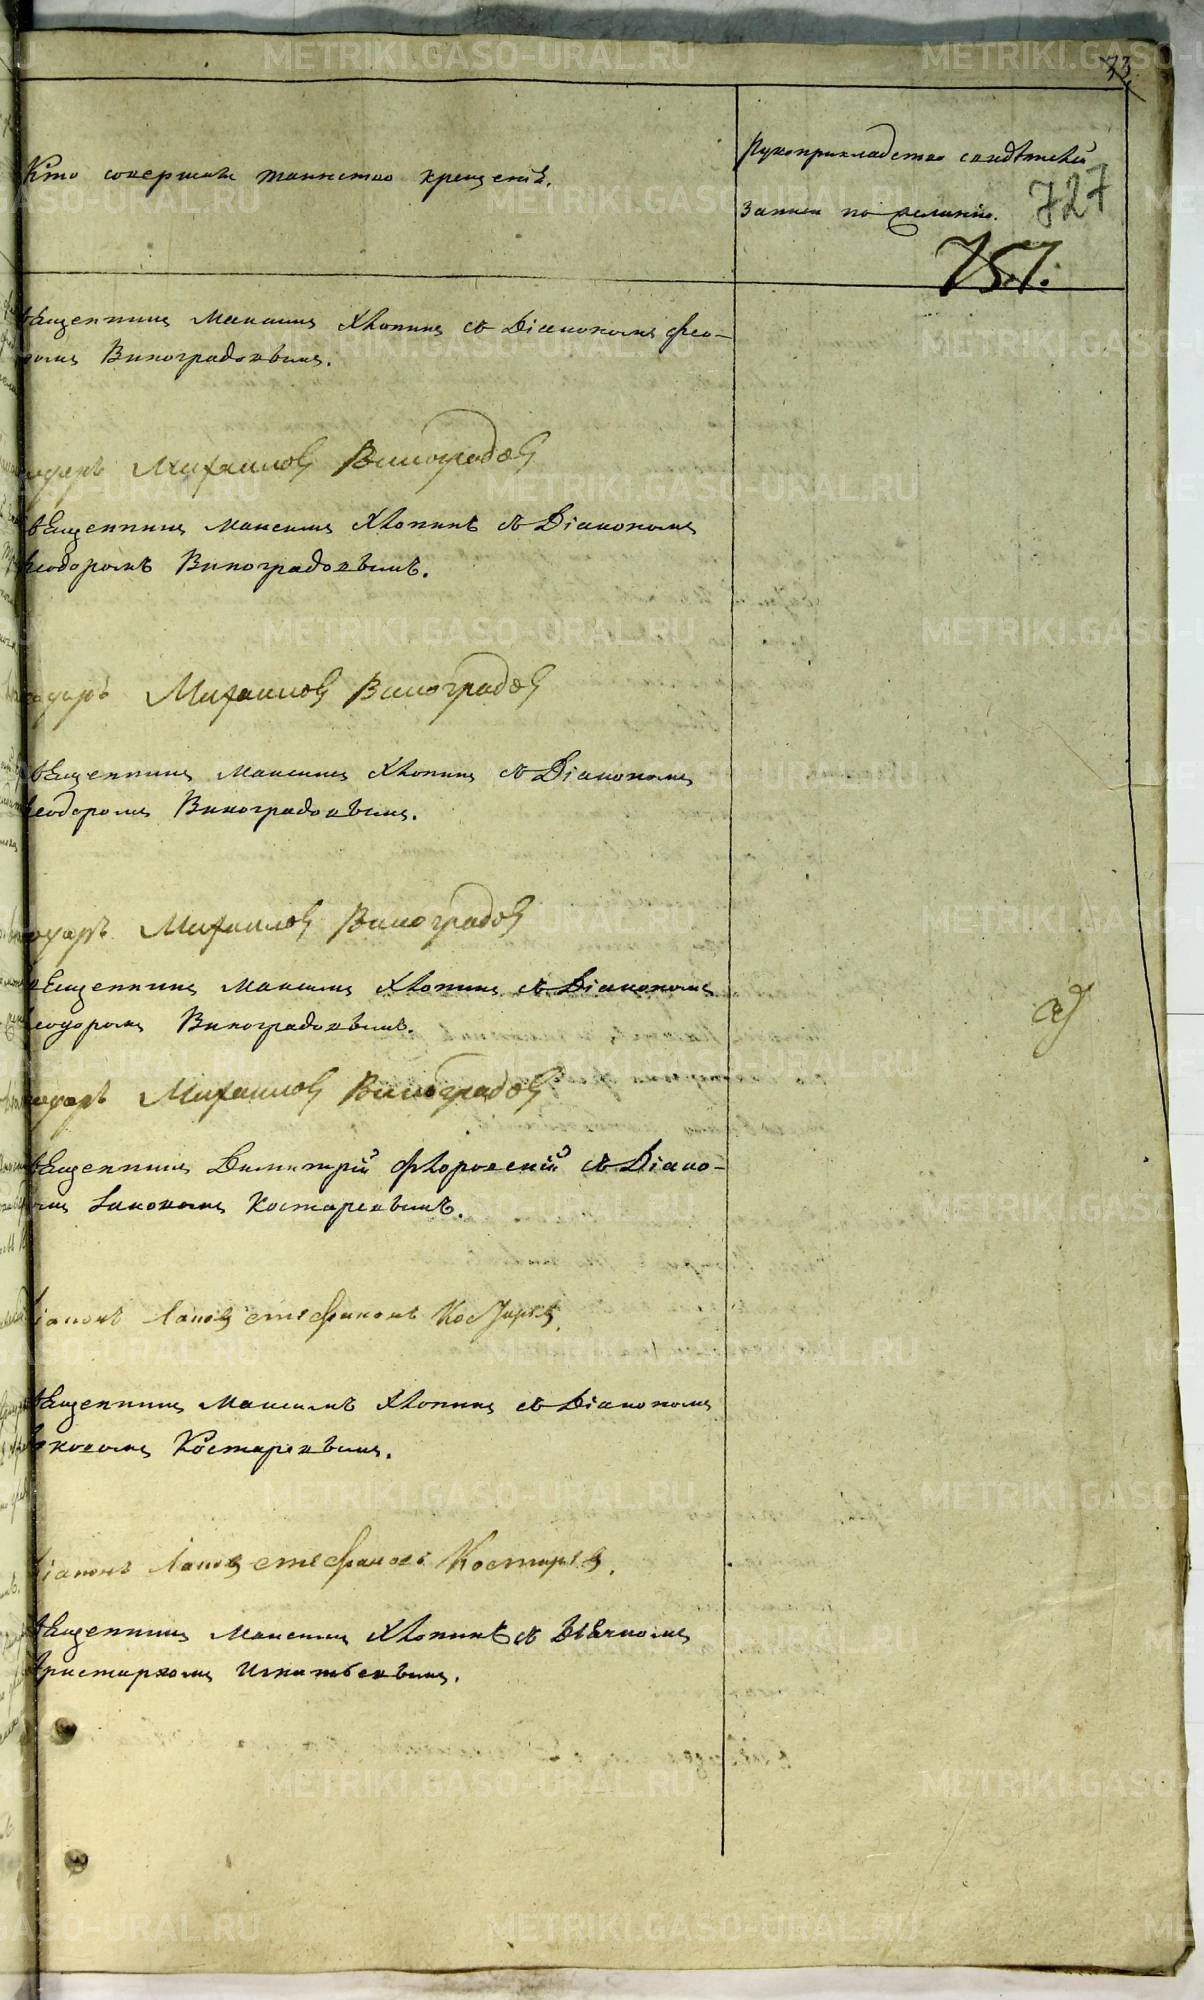 73.
Кто совершалъ таинство крещенія.
Рукоприкладство свидѣтелей
записи по желанію.
727
751.
Священникъ Максимъ Хлопинъ съ Діакономъ Ѳео-
доромъ Виноградовымъ.
Михаиловъ Виноградовъ
Священникъ Максимъ Хлопинъ съ Діакономъ
Ѳеодоромъ Виноградовымъ.
Михаиловъ Виноградовъ
Священникъ Максимъ Хлопинъ съ Діакономъ
Ѳеодоромъ Виноградовымъ.
Михаиловъ Виноградовъ
Священникъ Максимъ Хлопинъ съ Діакономъ
Ѳеодоромъ Виноградовымъ.
Михаиловъ Виноградовъ
Священникъ Димитрій Флоровскій съ Діако-
номъ Іаковомъ Костаревымъ.
Діаконъ Іаковъ Стефановъ Костаревъ.
Священникъ Максимъ Хлопинъ съ Діакономъ
Іаковомъ Костаревымъ.
Діаконъ Іаковъ Стефановъ Костаревъ.
Священникъ Максимъ Хлопинъ съ Дьячкомъ
Аристархомъ Игнатьевымъ.
METRIKI.GASO-URAL.RU